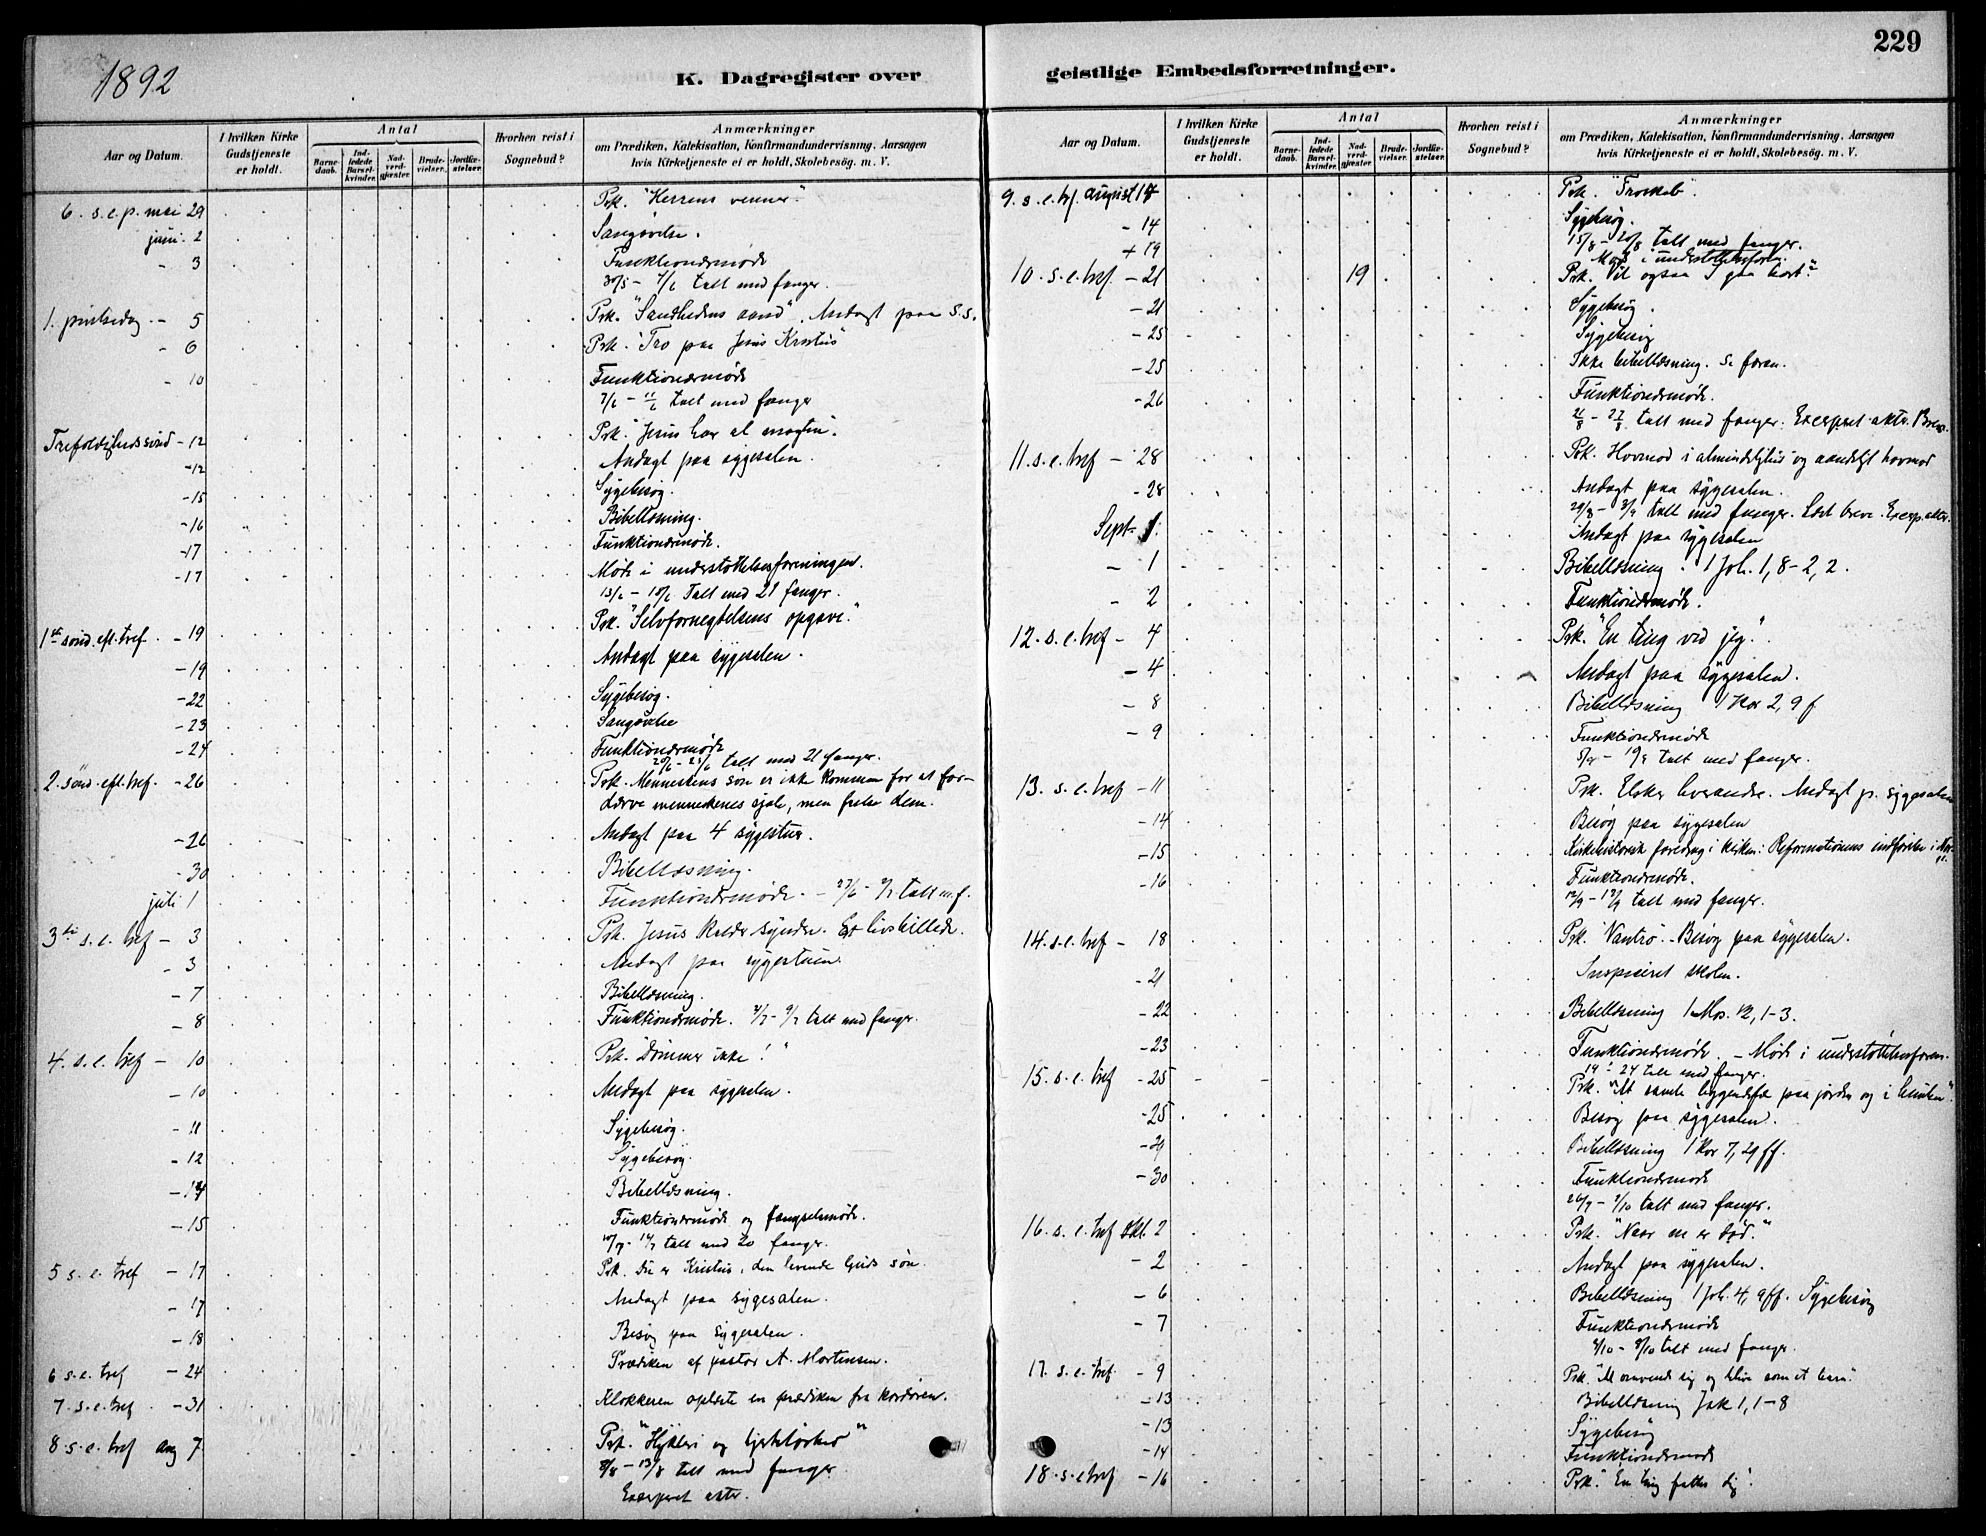 229
1892
K. Dagregister over geistlige Embedsforretninger.
Aar og Datum.
I hvilken Kirke Gudstjeneste er holdt.
Antal
Barnedaab.
Indledede Barselkvinder.
Nadverdgjæster.
Brudevielser.
Jordfæstelser.
Hvorhen reist i Sognebud?
Anmærkninger
om Prædiken, Katekisation, Konfirmandundervisning, Aarsagen
hvis Kirketjeneste ei er holdt, Skolebesøg. m. V.
6. s. e. p. mai 29 Prk. "Herrens venner".
juni 2 Sangøvelse.
- 3 Funktionærmøde
30/5 - 4/6 talt med fanger.
1. pintsedag - 5 Prk. "Sandhedens aand". Andagt paa S.s.
- 6 Prk. "Tro paa Jesus Kristus"
- 10 Funktionærmøde
7/6 - 11/6 talt med fanger
Trefoldigheds sønd - 12 Prk. "Jesus har al magten".
- 12 Andagt paa sygesalen.
- 15 Sygebesøg.
- 16 Bibellæsning.
- 17 Funktionærmøde.
- 17 Møde i understøttelsesforeningen.
13/6 - 18/6 Talt med 21 fanger.
1ste sønd. eft. tref. - 19 Prk. "Selvfornegtelsens opgave".
- 19 Andagt paa sygesalen.
- 22 Sygebesøg.
- 23 Sangøvelse
- 24 Funktionærmøde
20/6 - 25/6 talt med 21 fanger.
2. sønd. eft. tref. - 26 Prk. Menneskens søn er ikke kommen for at for-
dærve menneskenes sjæle, men frelse dem.
- 26 Andagt paa 4 sygestuer.
- 30 Bibellæsning.
juli 1 Funktionærmøde. - 27/6 - 2/7 talt m. f.
3die s. e. tref - 3 Prk. Jesus kalder syndere. Et livsbillede.
- 3 Andagt paa sygestuen.
- 7 Bibellæsning.
- 8 Funktionærmøde. 4/7 - 9/7 talt med fanger.
4. s. e. tref - 10 Prk. "Dømmer ikke!"
- 10 Andagt paa sygesalen.
- 11 Sygebesøg.
- 12 Sygebesøg.
- 14 Bibellæsning.
- 15 Funktionærmøde og fængselsmøde.
talt med 20 fanger.
5 s. e. tref - 17 Prk. Du er Kristus, den levende Guds søn.
- 17 Andagt paa sygesalen.
- 18 Besøg paa sygesalen.
6 s. e. tref - 24 Prædiken af pastor A. Mortensen.
7. s. e. tref - 31 Klokkeren oplæste en prædiken fra kordøren.
8 s. e. tref aug 7. Prk. "Hykleri og hjerteløshed"
8/8 - 13/8 talt med fanger
Excerperet akter.
Aar og Datum.
I hvilken Kirke Gudstjeneste er holdt.
Antal
Barnedaab.
Indledede Barselkvinder.
Nadverdgjæster.
Brudevielser.
Jordfæstelser.
Hvorhen reist i Sognebud?
Anmærkninger
om Prædiken, Katekisation, Konfirmandundervisning, Aarsagen
hvis Kirketjeneste ei er holdt, Skolebesøg. m. V.
9. s. e. tref. august 14 Prk. "Troskab".
- 14 Sygebesøg.
15/8 - 20/8 talt med fanger.
+ 19 Møde i understøttelsesforen.
10. s. e. tref. - 21 19 Prk. "Vil ogsaa I gaa bort?"
- 21 Sygebesøg.
- 25 Sygebesøg
- 25 Ikke bibellæsning. Se foran.
- 26 Funktionærmøde.
- 27/8 talt med fanger. Excerperet akter. Breve.
11. s. e. tref - 28 Prk. Hovmod i almindelighed og aandeligt hovmod
- 28 Andagt paa sygesalen.
29/8 - 3/9 talt med fanger. Læst breve. Excerp. akter.
Sept. 1. Andagt paa sygesalen
- 1 Bibellæsning. 1 Joh. 1, 8 - 2, 2.
- 2 Funktionærmøde.
12. s. e. tref - 4 Prk. "En ting ved jeg".
- 4 Andagt paa sygesalen.
- 8 Bibellæsning 1 Kor 2, 9 f
- 9 Funktionærmøde
talt med fanger.
13. s. e. tref - 11 Prk. Elsker hverandre. Andagt p. sygesalen
- 14 Besøg paa sygesalen
- 15 Kirkehistorisk foredrag i kirken: Reformationens indførelse i Norge.
- 16 Funktionærmøde.
12/9 - 17/9 talt med fanger.
14. s. e. tref - 18 Prk. "Vantro". Besøg paa sygesalen.
- 21 Inspiceret skolen.
- 22 Bibellæsning 1 Mos. 12, 1-3.
- 23 Funktionærmøde. - Møde i understøttelsesforen.
19 - 24 talt med fanger.
15. s. e. tref - 25 Prk. "At samle liggendefæ paa jorden og i himlen".
- 25 Besøg paa sygesalen.
- 29 Bibellæsning 1 Kor 7, 29 ff.
- 30 Funktionærmøde
26/9 - 1/10 talt med fanger.
16. s. e. tref okt. 2 Prk. "Naar en er død."
- 2 Andagt paa sygesalen.
- 6 Bibellæsning 1 Joh. 4, 9 ff. Sygebesøg
- 7 Funktionærmøde
- 8/10 talt med fanger.
17. s. e. tref. - 9 Prk. "At omvende sig og blive som et barn".
- 13 Bibellæsning Jak 1, 1-8
- 13 Sygebesøg
- 14 Funktionærmøde
18. s. e. tref - 16 Prk. "En ting fattes dig".